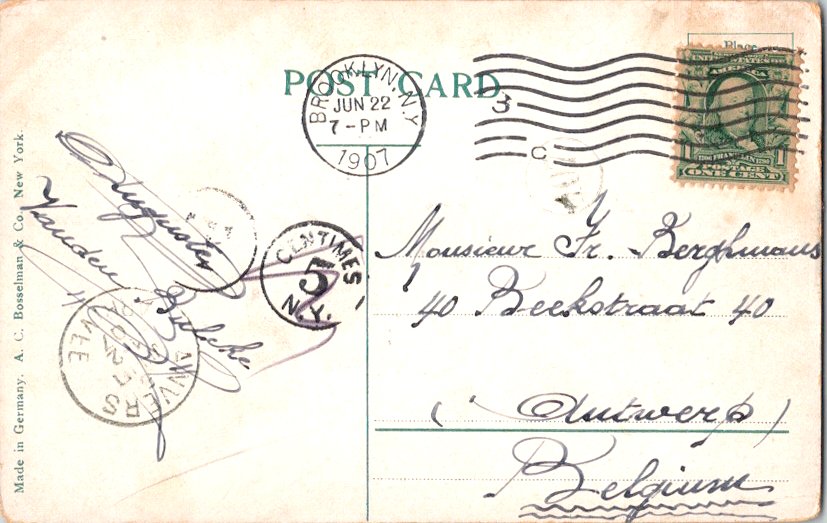 POST CARD
Place
BROOKLYN, N.Y.
JUN 22
7-PM
1907
3
C
UNITED STATES OF
AMERICA
FRANKLIN
1
POSTAGE
ONE CENT
Made in Germany. A. C. Bosselman & Co., New York.
Auguste
Vanden
CENTIMES
5
N.Y.
ANVERS
Monsieur Fr. Berghmans
40 Beekstraat 40
(Antwerp)
Belgium